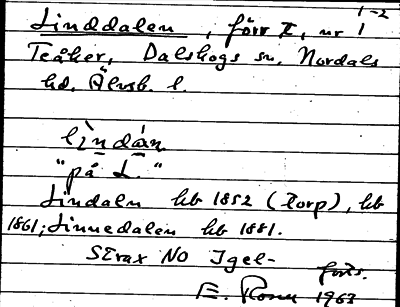 1-2
Linddalen, förr I, nr 1
Teåker, Dalskogs sn, Nordals
hd. Älvsb. l.
lìndán
"på L."
Lindaln hb 1852 (torp), hb
1861; Linnedalen hb 1881.
Strax NO Igel-
forts.
E. 1963